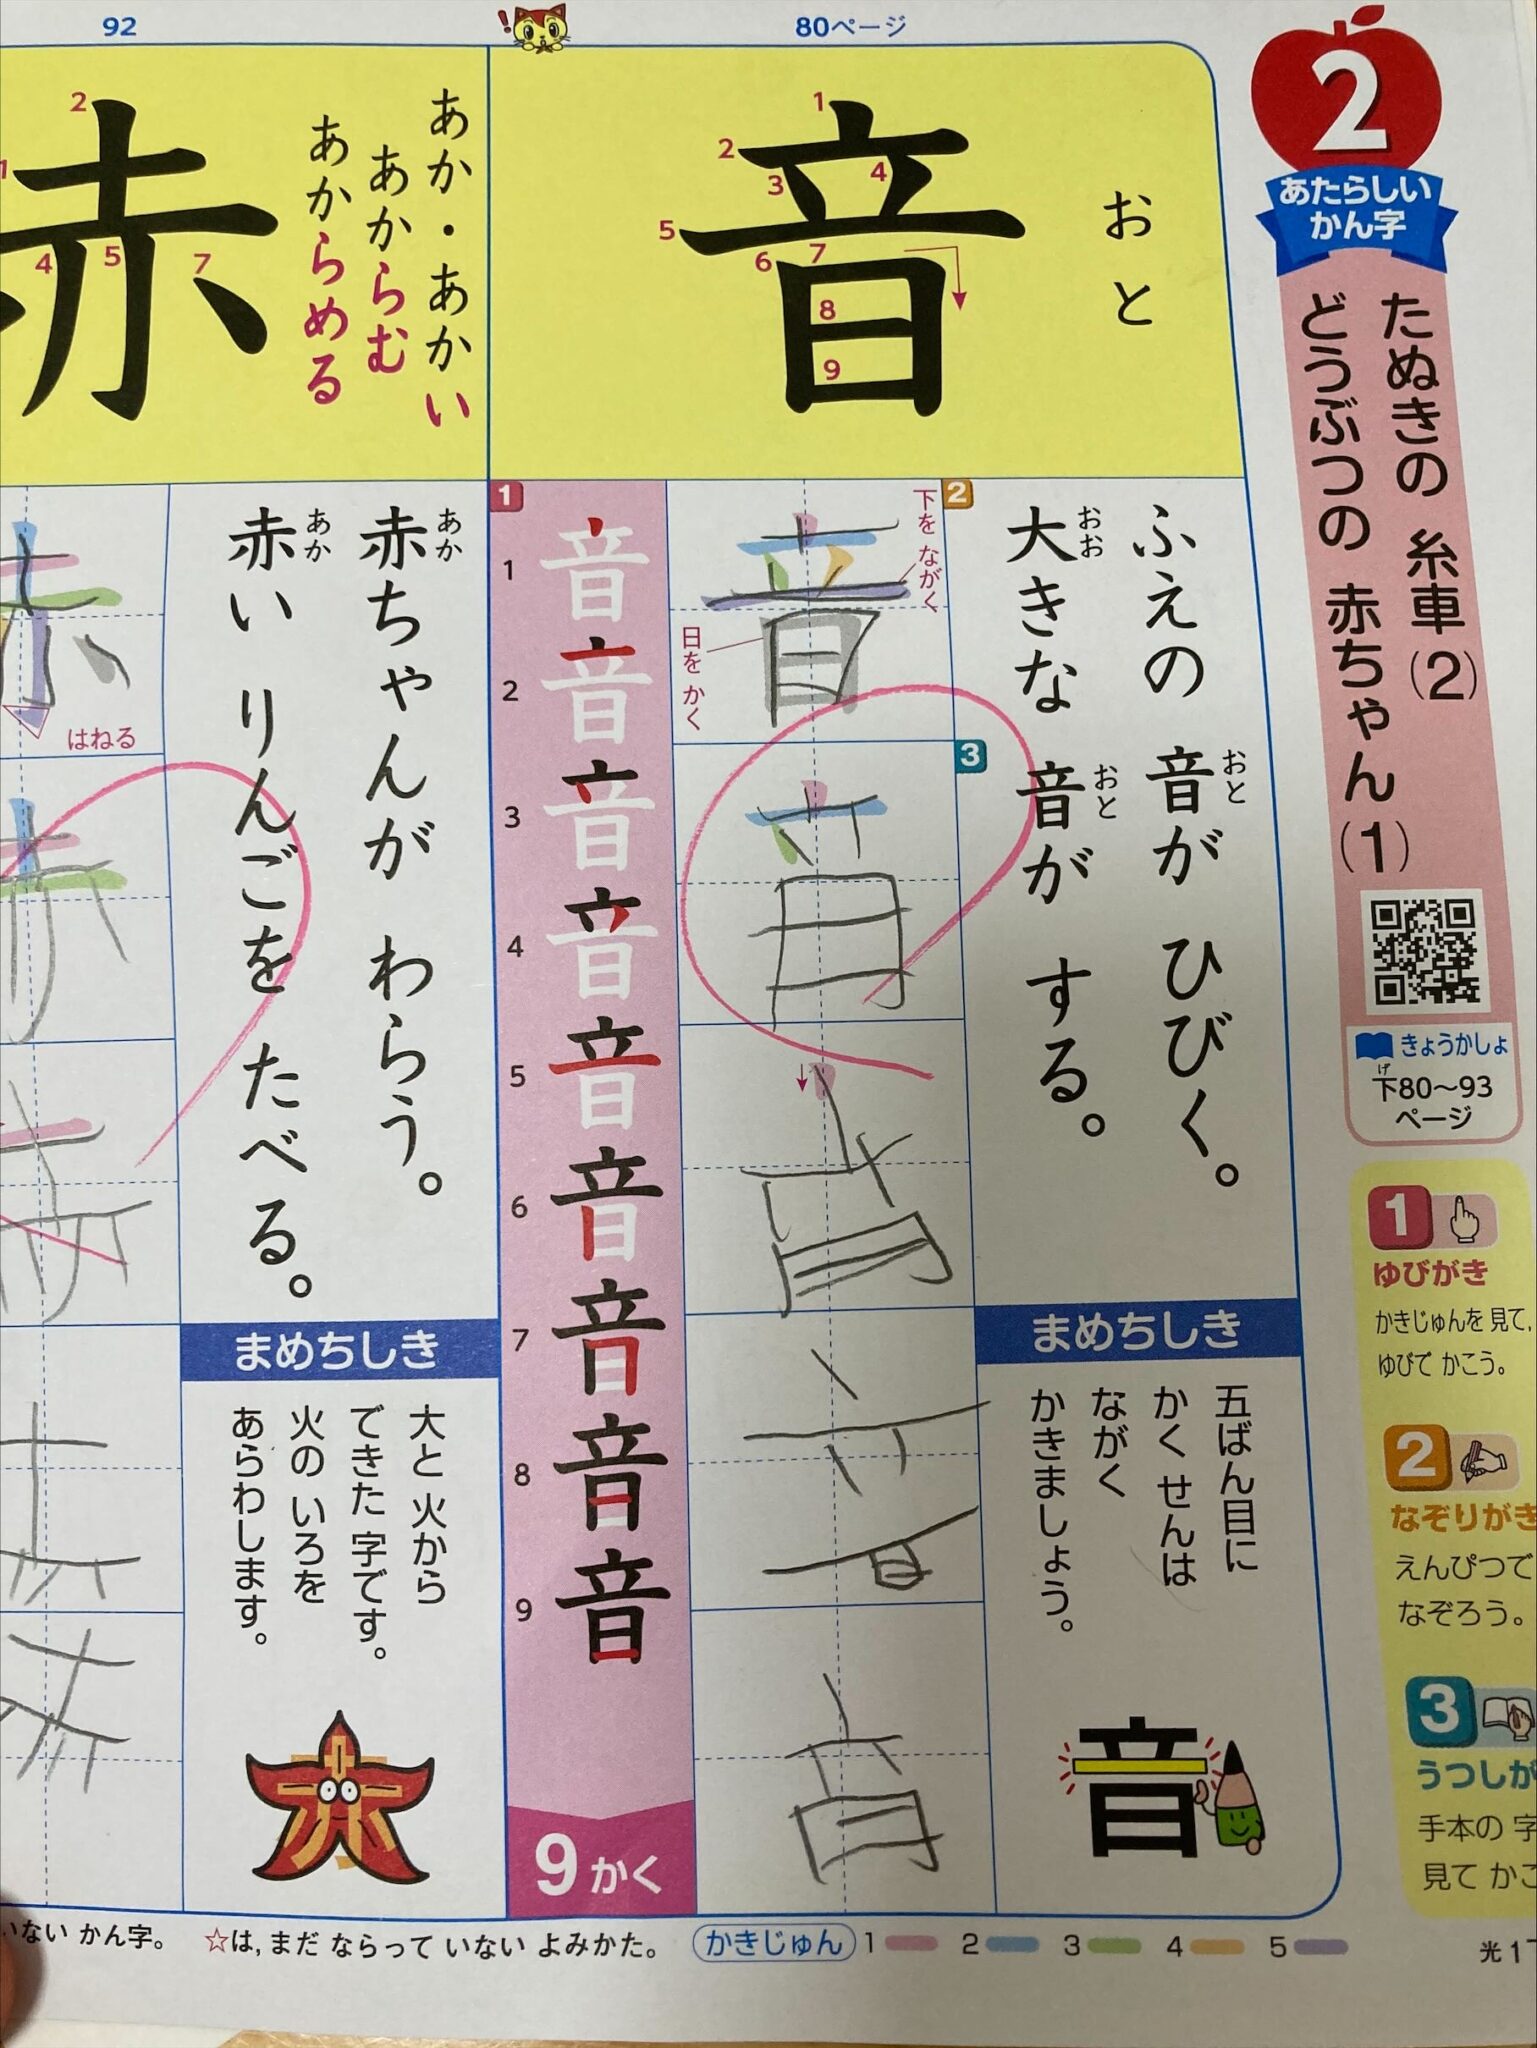 80ページ
92
2
あたらしい
かん字
たぬきの 糸車(2)
どうぶつの 赤ちゃん(1)
きょうかしょ
げ
下80〜93
ページ
1
ゆびがき
かきじゅんを 見て,
ゆびで かこう。
2
なぞりがき
えんぴつで
なぞろう。
3
手本の 字
おと
音
1
2
3
4
5
6
7
8
9
2
ふえの 音が ひびく。
おと
大きな 音が する。
おお
おと
まめちしき
五ばん目に
かく せんは
ながく
かきましょう。
音
下を ながく
日を かく
音
3
音
音
音
音
1
1 音
2 音
3 音
4 音
5 音
6 音
7 音
8 音
9 音
9かく
赤
2
1
4
5
7
あか・あかい
あからむ
あからめる
赤ちゃんが わらう。
あか
赤い りんごを たべる。
あか
まめちしき
大と 火から
できた 字です。
火の いろを
あらわします。
赤
はねる
いない かん字。
☆は,まだ ならって いない よみかた。
かきじゅん 1 2 3 4 5
光1